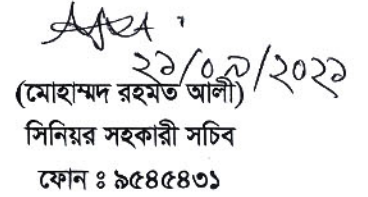 ২১/০৯/২০২১
(মোহাম্মদ রহমত আলী)
সিনিয়র সহকারী সচিব
ফোন ঃ ৯৫৪৫৪৩১